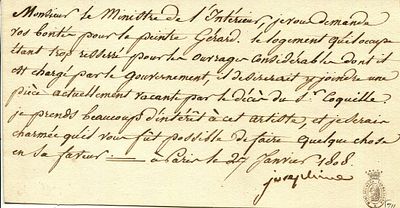 Monsieur le Ministre de l'Intérieur, je vous demande
vos bontés pour le peintre Gérard. le logement qu'il occupe
étant trop resserré pour les ouvrages considérables dont il
est chargé par le Gouvernement, il désirerait y joindre une
pièce actuellement vacante par le décès du Sr. Coquille.
je prends beaucoup d'intérêt à cet artiste, et je serai
charmée qu'il vous fût possible de faire quelque chose
en sa faveur — à Paris le 27 Janvier 1808.
joséphine